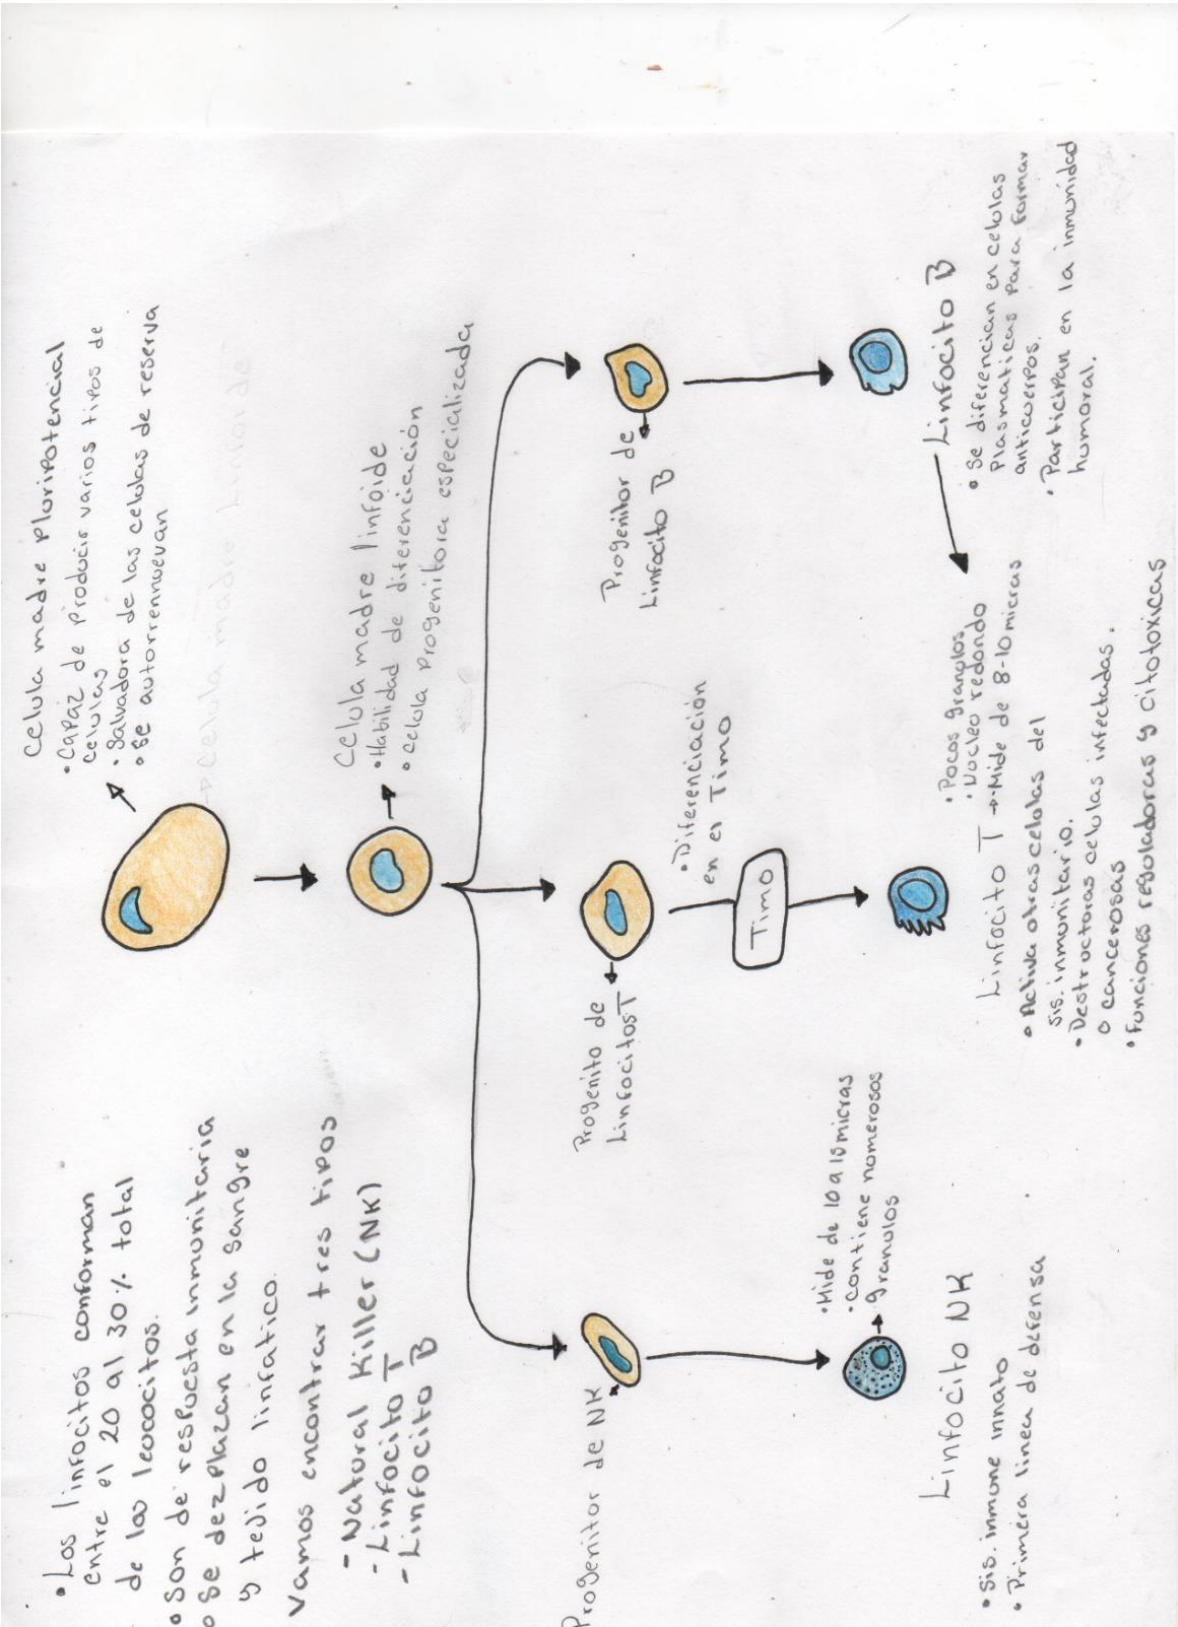 • Los linfocitos conforman
entre el 20 al 30% total
de los leucocitos.
• Son de respuesta inmunitaria
• Se dezplazan en la sangre
y tejido linfatico.
Vamos encontrar tres tipos
- Natural Killer (NK)
- Linfocito T
- Linfocito B
Celula madre Pluripotencial
• Capaz de Producir varios tipos de
celulas
• Salvadora de las celulas de reserva
• Se autorrennuevan
Celula madre linfoide
• Habilidad de diferenciación
• celula Progenitora especializada
Progenitor de NK
Progenito de
Linfocitos T
Progenitor de
Linfocito B
• Diferenciación
en el Timo
Timo
• Mide de 10 a 15 micras
• Contiene numerosos
granulos
Linfocito NK
• Sis. inmune innato
• Primera linea de defensa
• Pocos granulos
• Nucleo redondo
Linfocito T → Mide de 8-10 micras
• Activa otras celulas del
sis. inmunitario.
• Destructoras celulas infectadas
o cancerosas.
• Funciones reguladoras y citotoxicas
Linfocito B
• Se diferencian en celulas
Plasmaticas Para formar
anticuerpos.
• Participan en la inmunidad
humoral.